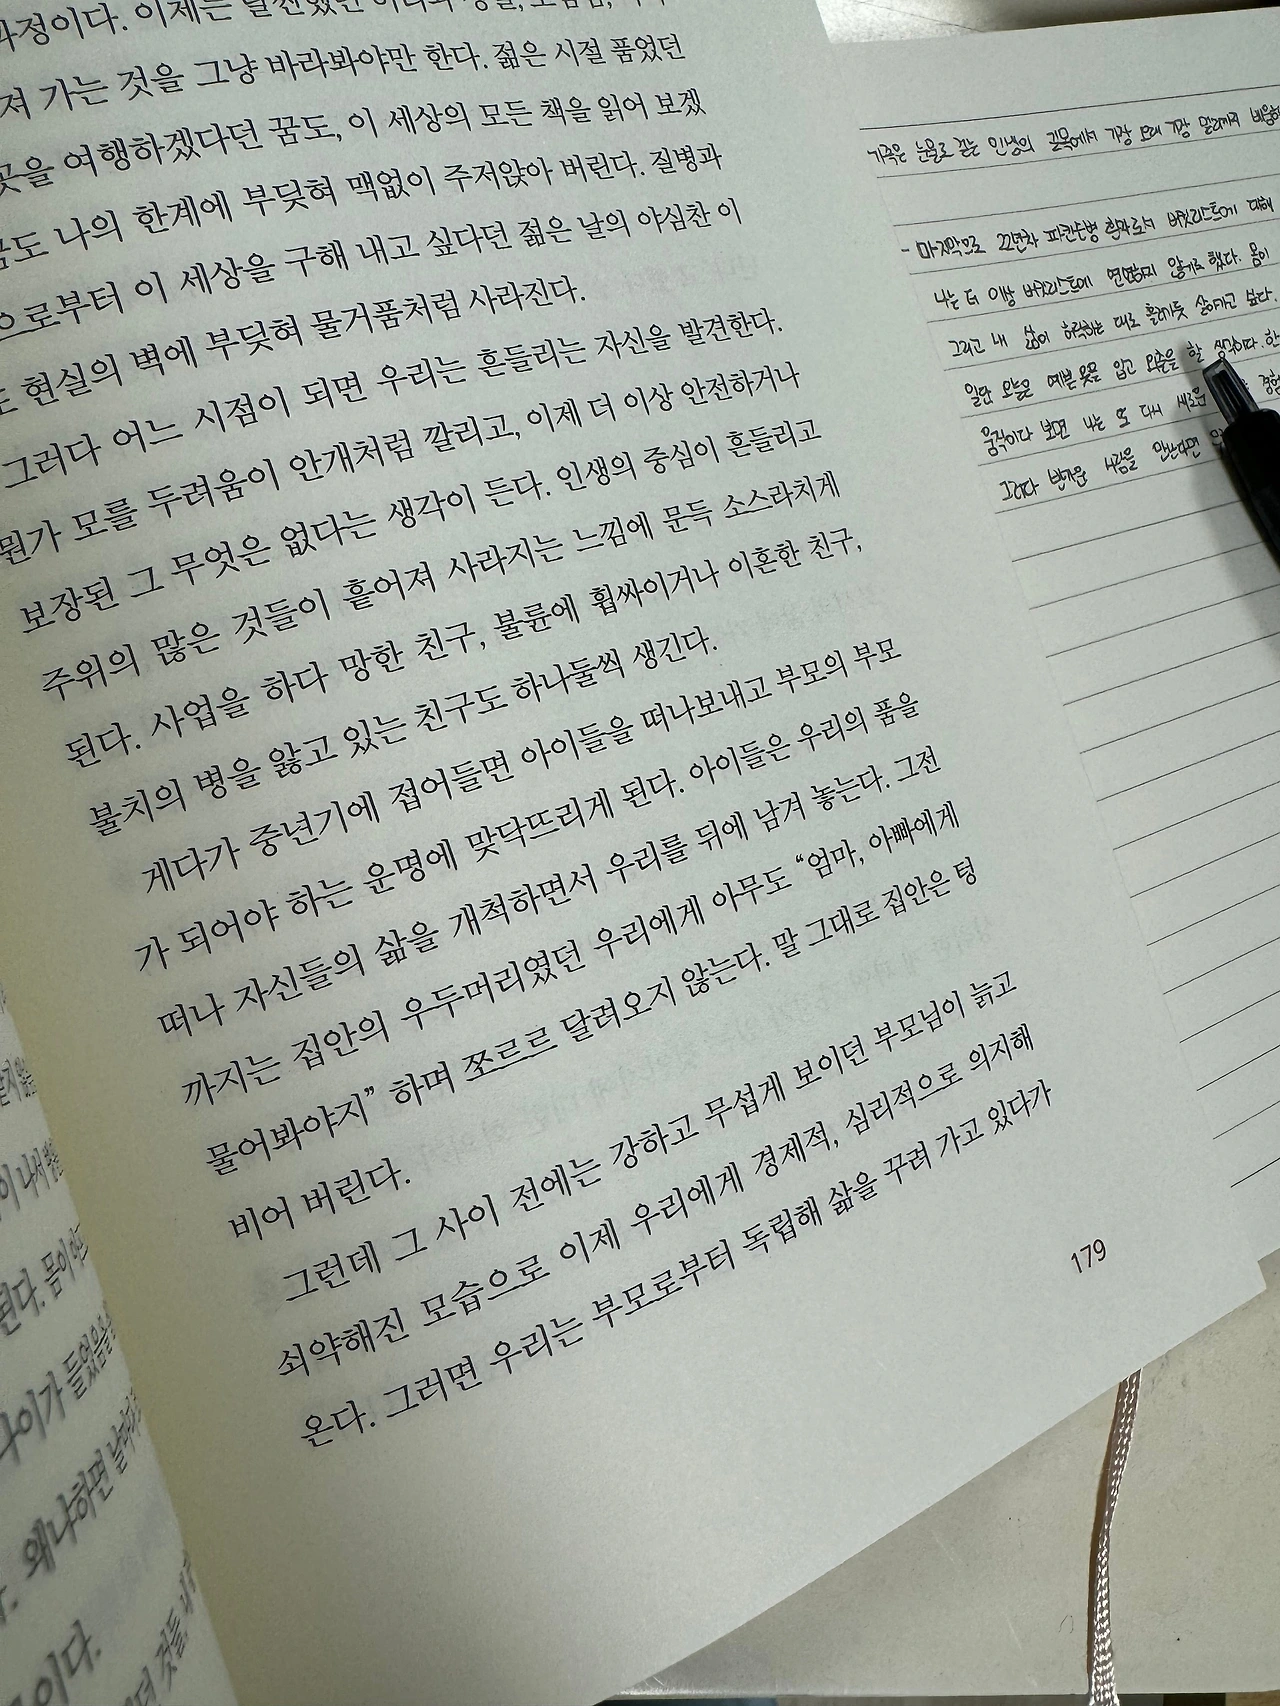 과정이다. 이제는
져 가는 것을 그냥 바라봐야만 한다. 젊은 시절 품었던
곳을 여행하겠다던 꿈도, 이 세상의 모든 책을 읽어 보겠
꿈도 나의 한계에 부딪혀 맥없이 주저앉아 버린다. 질병과
으로부터 이 세상을 구해 내고 싶다던 젊은 날의 야심찬 이
현실의 벽에 부딪혀 물거품처럼 사라진다.
그러다 어느 시점이 되면 우리는 흔들리는 자신을 발견한다.
뭔가 모를 두려움이 안개처럼 깔리고, 이제 더 이상 안전하거나
보장된 그 무엇은 없다는 생각이 든다. 인생의 중심이 흔들리고
주위의 많은 것들이 흩어져 사라지는 느낌에 문득 소스라치게
된다. 사업을 하다 망한 친구, 불륜에 휩싸이거나 이혼한 친구,
불치의 병을 앓고 있는 친구도 하나둘씩 생긴다.
게다가 중년기에 접어들면 아이들을 떠나보내고 부모의 부모
가 되어야 하는 운명에 맞닥뜨리게 된다. 아이들은 우리의 품을
떠나 자신들의 삶을 개척하면서 우리를 뒤에 남겨 놓는다. 그전
까지는 집안의 우두머리였던 우리에게 아무도 “엄마, 아빠에게
물어봐야지” 하며 쪼르르 달려오지 않는다. 말 그대로 집안은 텅
비어 버린다.
그런데 그 사이 전에는 강하고 무섭게 보이던 부모님이 늙고
쇠약해진 모습으로 이제 우리에게 경제적, 심리적으로 의지해
온다. 그러면 우리는 부모로부터 독립해 삶을 꾸려 가고 있다가
179
가족은 눈물로 걷는 인생의 길목에서 가장 오래 가장 멀리까지 배웅하
- 마지막으로 22년차 파킨슨병 환자로서 버킷리스트에 대해
나는 더 이상 버킷리스트에 연연하지 않기로 했다. 몸이
그리고 내 삶이 허락하는 대로 흘러가듯 살아가고 싶다.
일단 오늘은 예쁜 옷을 입고 외출을 할 생각이다. 한
움직이다 보면 나는 또 다시 새로운 경험
그러다 반가운 사람을 만난다면
나서
된다. 몸이
나이가 들었음을
왜냐하면
이다.
것들,